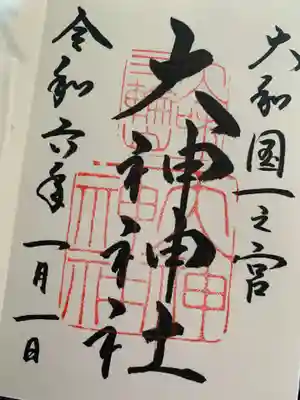 大和国一之宮
大神神社
令和六年一月一日